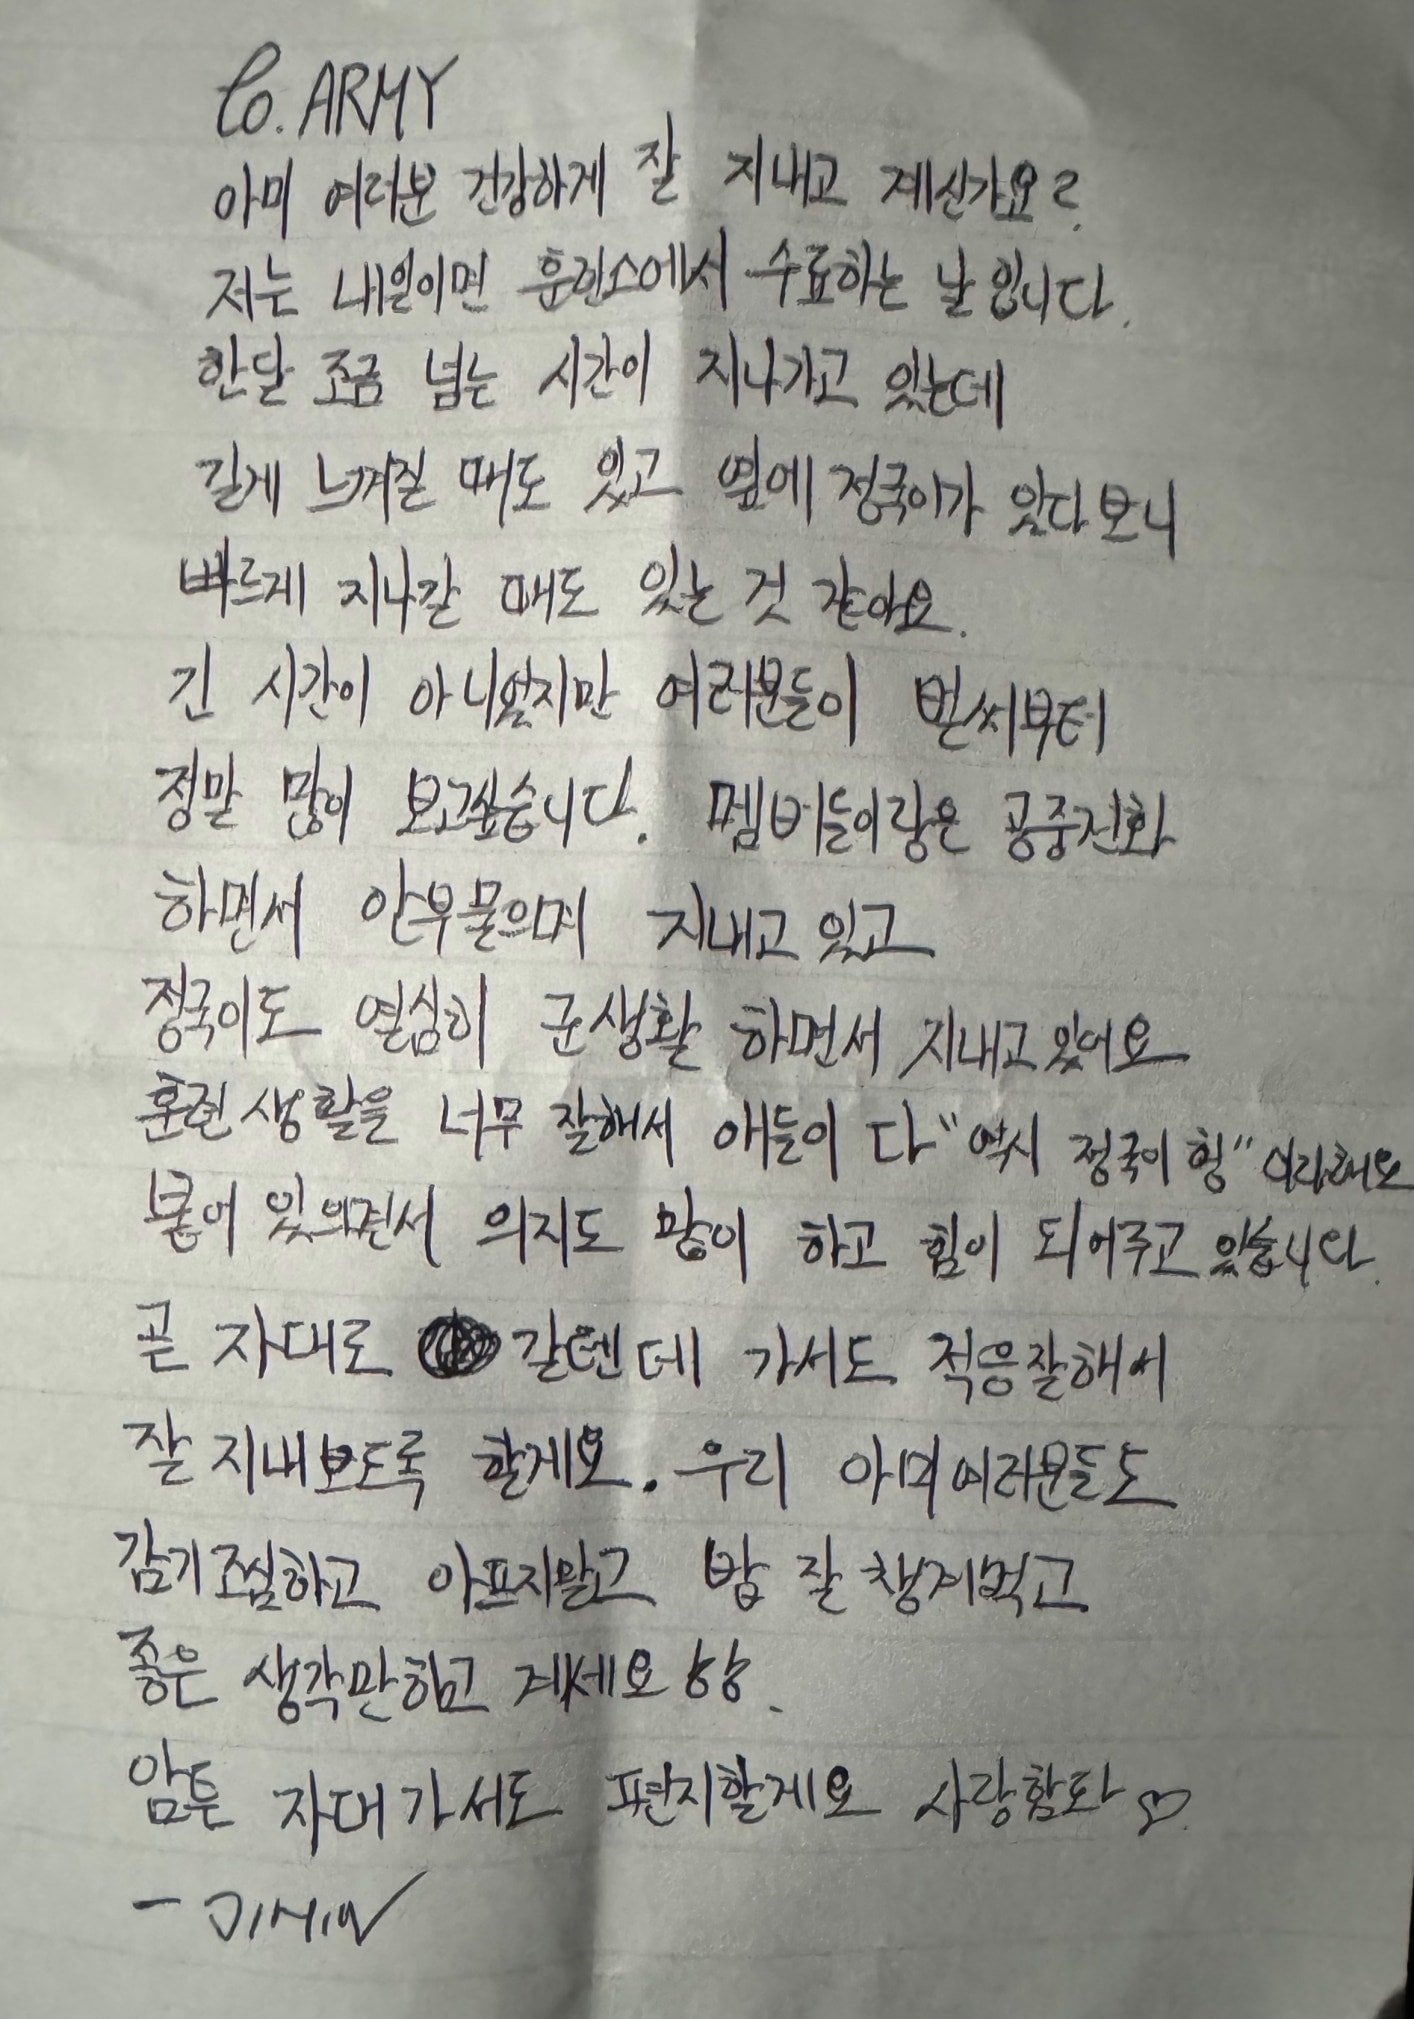 To. ARMY
아미 여러분 건강하게 잘 지내고 계신가요?
저는 내일이면 훈련소에서 수료하는 날 입니다.
한달 조금 넘는 시간이 지나가고 있는데
길게 느껴질 때도 있고 옆에 정국이가 있다보니
빠르게 지나갈 때도 있는 것 같아요.
긴 시간이 아니였지만 여러분들이 벌써부터
정말 많이 보고싶습니다. 멤버들이랑은 공중전화
하면서 안부 물으며 지내고 있고
정국이도 열심히 군생활 하면서 지내고 있어요
훈련 생활을 너무 잘해서 애들이 다 "역시 정국이 형" 이라해요
붙어 있으면서 의지도 많이 하고 힘이 되어주고 있습니다.
곧 자대로 갈텐데 가서도 적응잘해서
잘 지내보도록 할게요. 우리 아미여러분들도
감기조심하고 아프지말고 밥 잘 챙겨먹고
좋은 생각만하고 계세요
암튼 자대가서도 편지할게요 사랑함돠♡.
- JIMIN